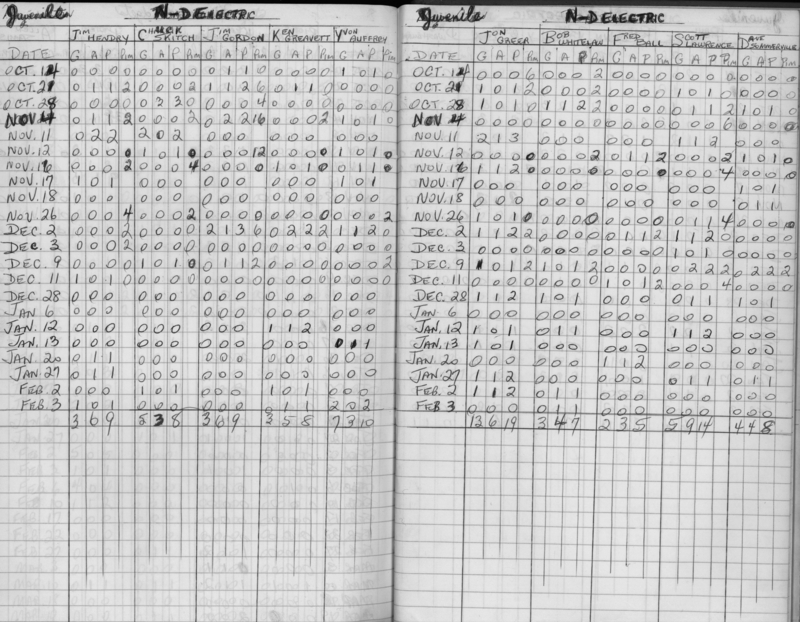 Juvenile N-D ELECTRIC
JIM HENDRY CHUCK SKITCH JIM GORDON KEN GREAVETT YVON AUFFREY
DATE G A P Pim G A P Pim G A P Pim G A P Pim G A P Pim
OCT. 14 0 0 0 0 0 0 0 0 0 1 1 0 0 0 0 0 1 0 1 0
OCT. 21 0 1 1 2 0 0 0 2 1 1 2 6 0 1 1 0 0 0 0 0
OCT. 28 0 0 0 0 0 3 3 0 0 0 0 4 0 0 0 0 0 0 0 0
NOV. 4 0 1 1 2 0 0 0 2 0 2 2 16 0 0 0 2 1 0 1 0
NOV. 11 0 2 2 2 0 2 0 0 0 0 0 0 0 0 0
NOV. 12 0 0 0 0 1 0 1 0 0 0 0 12 0 0 0 0 1 0 1 0
NOV. 16 0 0 0 2 0 0 0 4 0 0 0 0 1 0 1 0 0 1 1 0
NOV. 17 1 0 1 0 0 0 0 0 0 0 0 0 1 0 1
NOV. 18 0 0 0 0 0 0 0 0 0 0 0 0 0 0 0
NOV. 26 0 0 0 4 0 0 0 2 0 0 0 0 0 0 0 0 0 0 0 2
DEC. 2 0 0 0 2 0 0 0 0 2 1 3 6 0 2 2 2 1 1 2 0
DEC. 3 0 0 0 2 0 0 0 0 0 0 0 0 0 0 0 0 0 0 0 0
DEC. 9 0 0 0 0 1 0 1 0 0 1 1 2 0 0 0 0 0 0 0 2
DEC. 11 1 0 1 0 0 0 0 0 0 0 0 0 0 0 0 0 0 0 0 0
DEC. 28 0 0 0 0 0 0 0 0 0 0 0 0 0 0 0
JAN 6 0 0 0 0 0 0 0 0 0 0 0 0 0 0 0
JAN. 12 0 0 0 0 0 0 0 0 0 1 1 2 0 0 0
JAN. 13 0 0 0 0 0 0 0 0 0 0 0 0 0 1 1
JAN. 20 0 1 1 0 0 0 0 0 0 0 0 0 0 0 0
JAN. 27 0 1 1 0 0 0 0 0 0 0 0 0 0 0 0
FEB. 2 0 0 0 1 0 1 0 0 0 1 0 1 0 0 0
FEB. 3 1 0 1 0 0 0 0 0 0 0 1 1 2 0 2
3 6 9 5 3 8 3 6 9 3 5 8 7 3 10
Juvenile N-D ELECTRIC
JON GREER BOB WHITELAW FRED BALL SCOTT LAWRENCE DAVE SOMMERVILLE
DATE G A P Pim G A P Pim G A P Pim G A P Pim G A P Pim
OCT. 14 0 0 0 6 0 0 0 2 0 0 0 0 0 0 0 0 0 0 0 0
OCT. 21 1 0 1 2 0 0 0 2 0 0 0 0 1 0 1 0 0 0 0 0
OCT. 28 1 0 1 0 1 1 2 2 0 0 0 0 0 1 1 2 1 0 1 0
NOV 4 0 0 0 0 0 0 0 0 0 0 0 0 0 0 0 6 0 0 0 0
NOV. 11 2 1 3 0 0 0 0 0 0 1 1 2 0 0 0
NOV. 12 0 0 0 0 0 0 0 2 0 1 1 2 0 0 0 2 1 0 1 0
NOV. 16 1 1 2 0 0 0 0 0 0 0 0 0 0 0 0 4 0 0 0 0
NOV. 17 0 0 0 0 0 0 0 0 0 0 0 0 1 0 1
NOV. 18 0 0 0 0 0 0 0 0 0 0 0 0 0 1 1
NOV. 26 1 0 1 0 0 0 0 0 0 0 0 0 0 1 1 4 0 0 0 0
DEC. 2 1 1 2 2 0 0 0 0 0 1 1 2 1 1 2 0 0 0 0 0
DEC. 3 0 0 0 0 0 0 0 0 0 0 0 0 1 0 1 0 0 0 0 0
DEC. 9 1 0 1 2 1 0 1 2 0 0 0 0 0 2 2 2 0 2 2 2
DEC. 11 0 0 0 0 0 0 0 0 1 0 1 2 0 0 0 4 0 0 0 0
DEC. 28 1 1 2 1 0 1 0 0 0 0 1 1 1 0 1
JAN 6 0 0 0 0 0 0 0 0 0 0 0 0 0 0 0
JAN. 12 1 0 1 0 1 1 0 0 0 1 1 2 0 0 0
JAN. 13 1 0 1 0 0 0 0 0 0 0 0 0 0 0 0
JAN. 20 0 0 0 0 0 0 1 1 2 0 0 0 0 0 0
JAN. 27 1 1 2 0 0 0 0 0 0 0 1 1 0 1 1
FEB. 2 1 1 2 0 1 1 0 0 0 0 0 0 0 0 0
FEB 3 0 0 0 0 1 1 0 0 0 0 0 0 0 0 0
13 6 19 3 4 7 2 3 5 5 9 14 4 4 8